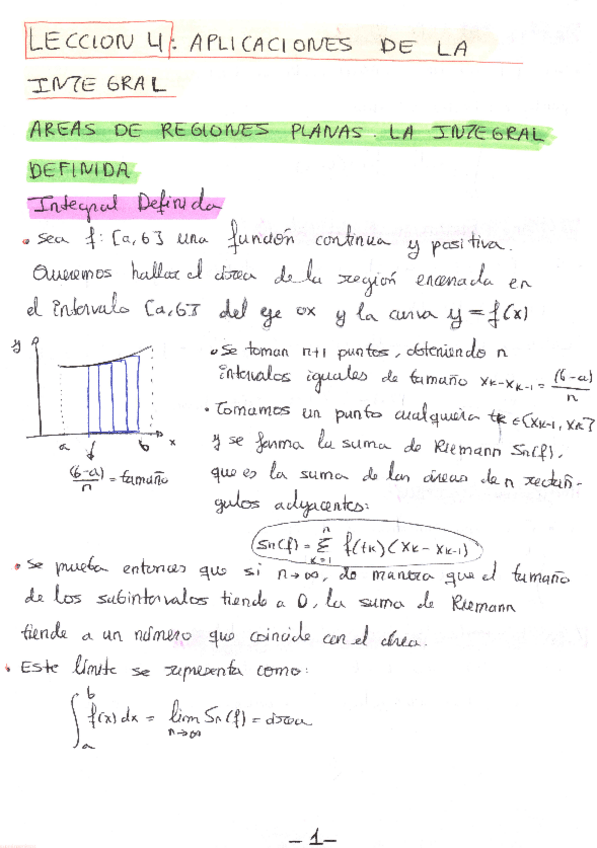 LECCION 4: APLICACIONES DE LA
INTEGRAL
AREAS DE REGIONES PLANAS. LA INTEGRAL
DEFINIDA
Integral Definida
• Sea f: [a,b] una función continua y positiva.
Queremos hallar el área de la región encerrada en
el intervalo [a,b] del eje ox y la curva y = f(x)
y
a b x
(b-a)/n = tamaño
• Se toman n+1 puntos, obteniendo n
intervalos iguales de tamaño xk-xk-1 = (b-a)/n
• Tomamos un punto cualquiera tk ∈ [xk-1, xk]
y se forma la suma de Riemann Sn(f),
que es la suma de las áreas de n rectán-
gulos adyacentes:
Sn(f) = Σ_{k=1}^{n} f(tk)(xk - xk-1)
• Se prueba entonces que si n→∞, de manera que el tamaño
de los subintervalos tiende a 0, la suma de Riemann
tiende a un número que coincide con el área.
• Este límite se representa como:
∫_a^b f(x) dx = lim_{n→∞} Sn(f) = área
- 1 -